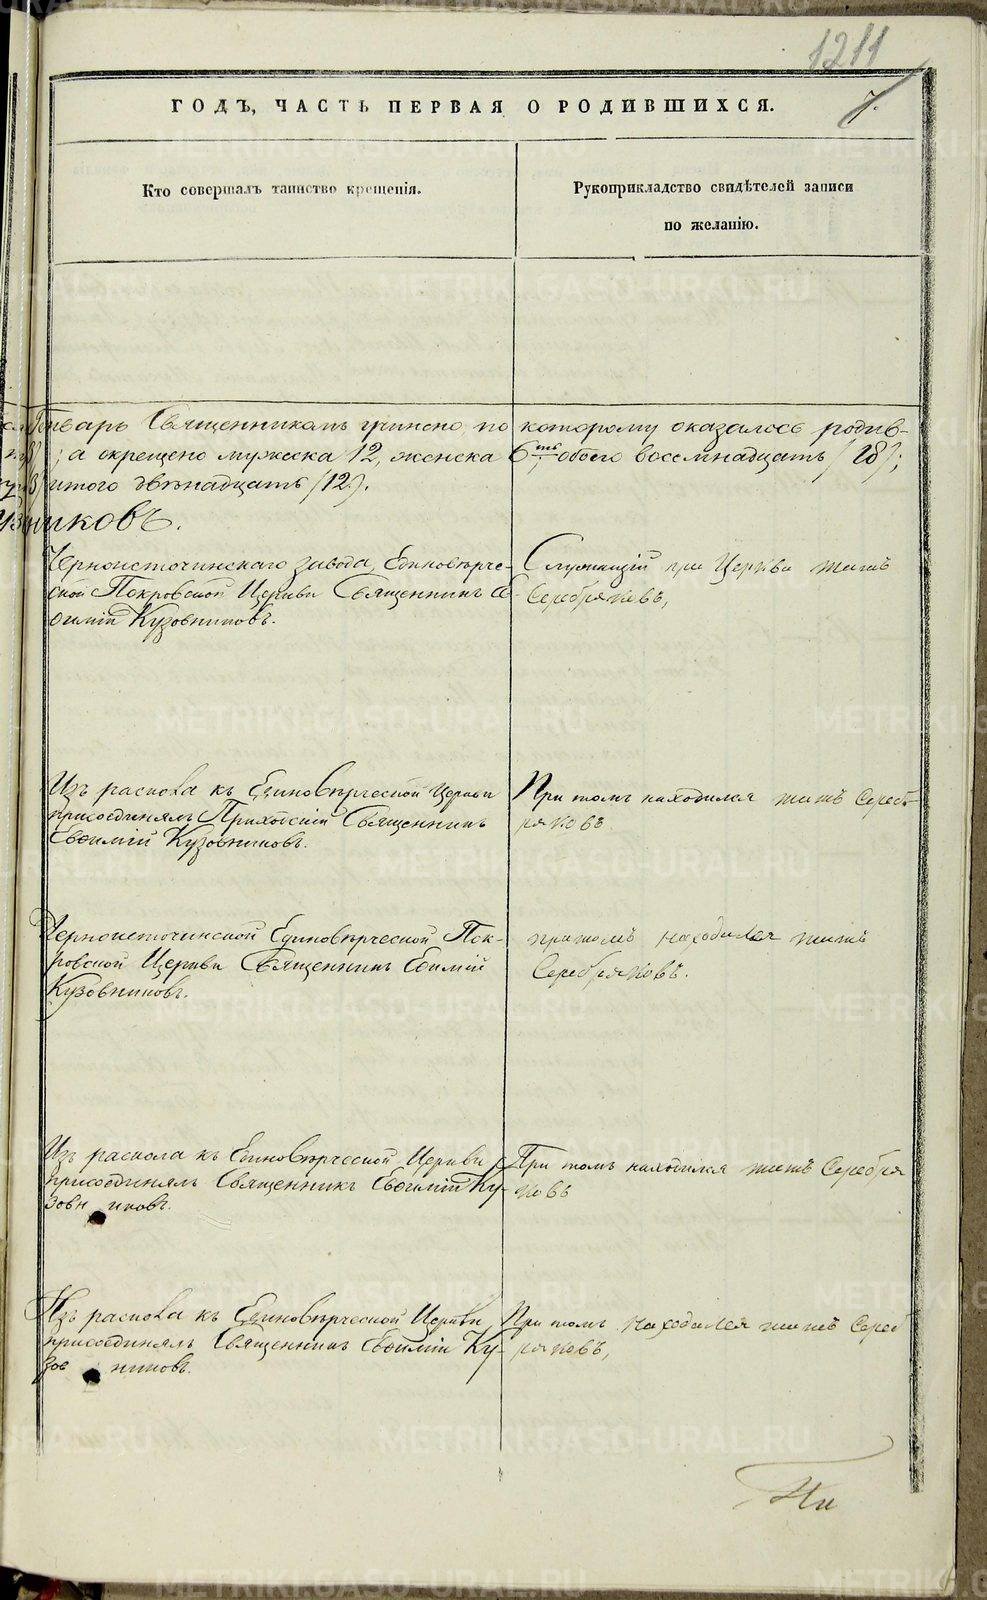 1211
ГОДЪ, ЧАСТЬ ПЕРВАЯ О РОДИВШИХСЯ.
7.
Кто совершалъ таинство крещенія.
Рукоприкладство свидѣтелей записи
по желанію.
Генварь Священникомъ учинено, по которому оказалось родив-
; а окрещено мужеска 12, женска 6ть, обоего восемнадцать (18);
итого двѣнадцать (12).
никовъ.
Черноисточинскаго завода, Единовѣрче-
ской Покровской Церкви Священникъ Ев-
ѳимій Кузовниковъ.
Служащій при Церкви
Серебряковъ,
Изъ раскола къ Единовѣрческой Церкви
присоединялъ Приходскій Священникъ
Евѳимій Кузовниковъ.
При томъ находился Сереб-
ряковъ
Черноисточинской Единовѣрческой Пок-
ровской Церкви Священникъ Евѳимій
Кузовниковъ.
при томъ находился
Серебряковъ.
Изъ раскола къ Единовѣрческой Церкви
присоединялъ Священникъ Евѳимій Ку-
зовниковъ.
При томъ находился Серебря
ковъ
Изъ раскола къ Единовѣрческой Церкви
присоединялъ Священникъ Евѳимій Ку-
зовниковъ.
При томъ находился Сереб
ряковъ,
METRIKI.GASO-URAL.RU